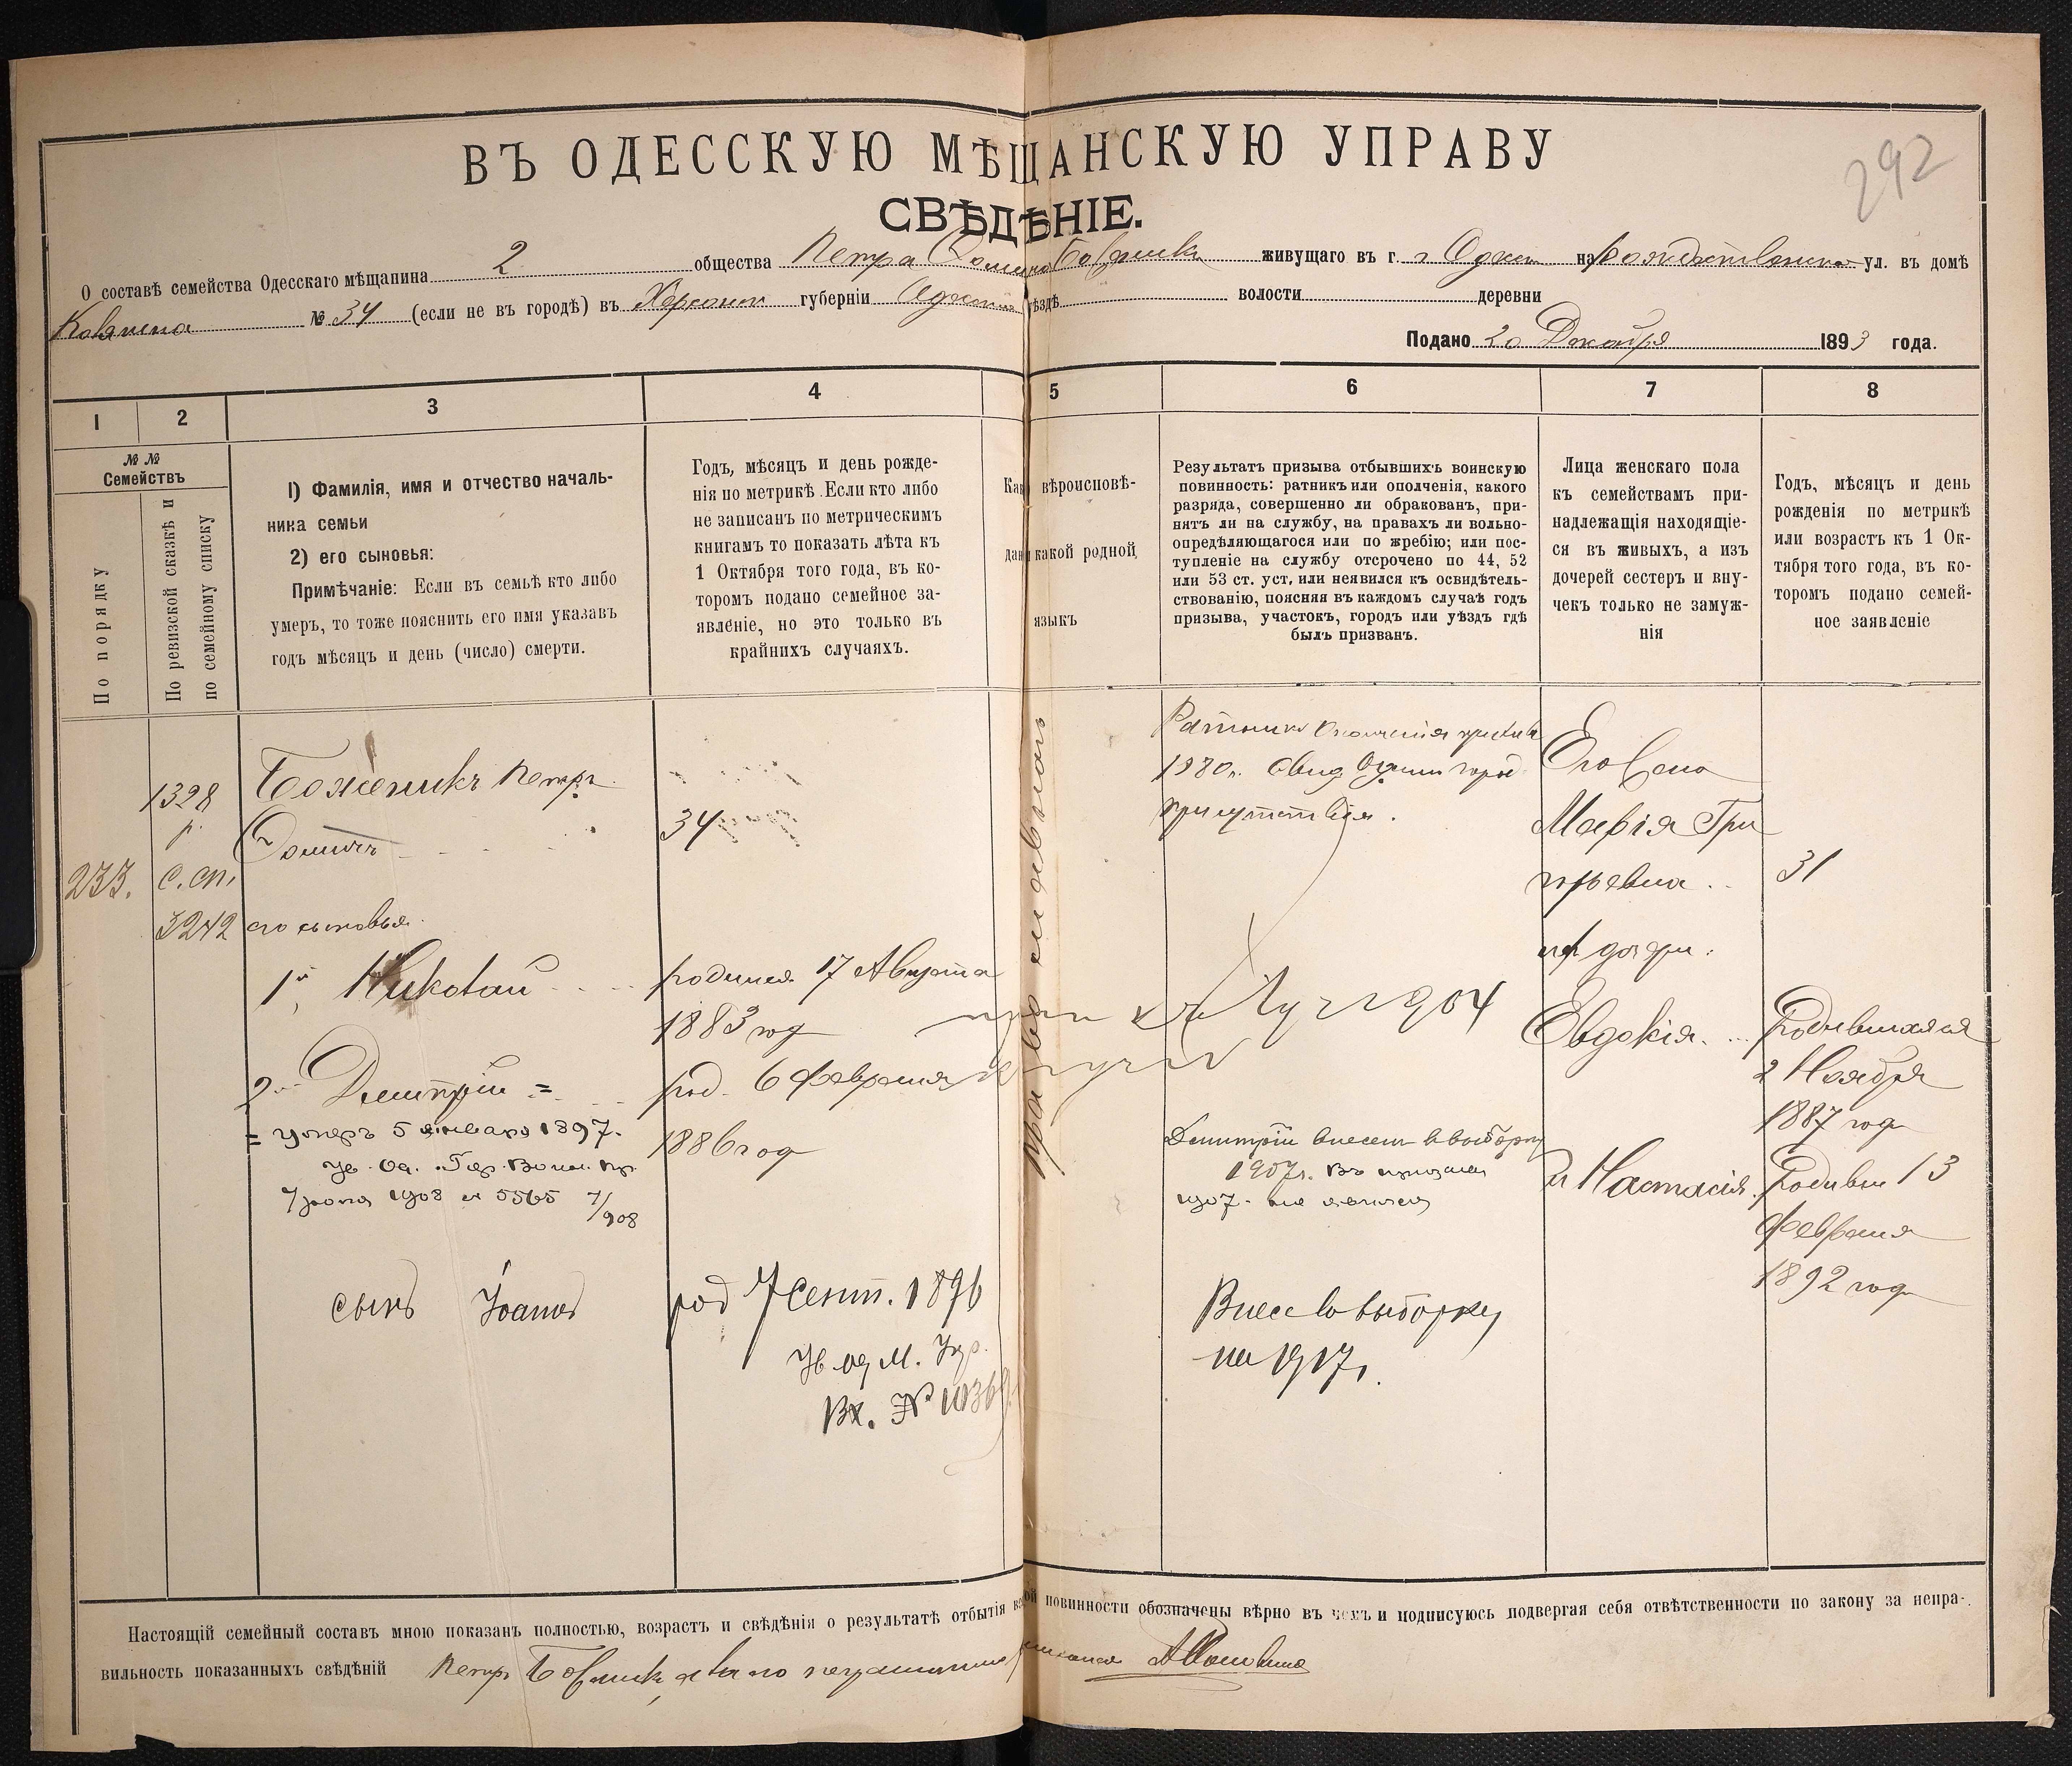 292
ВЪ ОДЕССКУЮ МѢЩАНСКУЮ УПРАВУ
СВѢДѢНІЕ.
О составѣ семейства Одесскаго мѣщанина 2 общества Петра живущаго въ г. на ул. въ домѣ
№ 34 (если не въ городѣ) въ Херсонск губерніи уѣздѣ волости деревни
Подано 20 Декабря 1893 года.
1 2 3 4 5 6 7 8
№ №
Семействъ
По порядку
По ревизской сказкѣ и
по семейному списку
1) Фамилія, имя и отчество началь-
ника семьи
2) его сыновья:
Примѣчаніе: Если въ семьѣ кто либо
умеръ, то тоже пояснить его имя указавъ
годъ мѣсяцъ и день (число) смерти.
Годъ, мѣсяцъ и день рожде-
нія по метрикѣ. Если кто либо
не записанъ по метрическимъ
книгамъ то показать лѣта къ
1 Октября того года, въ ко-
торомъ подано семейное за-
явленіе, но это только въ
крайнихъ случаяхъ.
вѣроисповѣ-
какой родной
языкъ
Результатъ призыва отбывшихъ воинскую
повинность: ратникъ или ополченія, какого
разряда, совершенно ли обракованъ, при-
нятъ ли на службу, на правахъ ли вольно-
опредѣляющагося или по жребію; или пос-
тупленіе на службу отсрочено по 44, 52
или 53 ст. уст, или неявился къ освидѣтель-
ствованію, поясняя въ каждомъ случаѣ годъ
призыва, участокъ, городъ или уѣздъ гдѣ
былъ призванъ.
Лица женскаго пола
къ семействамъ при-
надлежащія находящіе-
ся въ живыхъ, а изъ
дочерей сестеръ и вну-
чекъ только не замуж-
нія
Годъ, мѣсяцъ и день
рожденія по метрикѣ
или возрастъ къ 1 Ок-
тября того года, въ ко-
торомъ подано семей-
ное заявленіе
233.
1328
р.
с. сп.
3242
Боженикъ Петръ
его сыновья
1й Николай
2й Дмитрій =
= умеръ 5 января 1897.
1908 № 5565 7/908
сынъ Іоаннъ
34
родился 17 Августа
1883 год
род. 6 Февраля
1886 год
род 7 Сент. 1896
Вх. №
православнаго
Ратникъ ополченія
присутствія.
1904
Дмитрій внесенъ в выборку
1907г. Въ
1907. не явился
Внес во выборку
на 1917г.
Его жена
Марія Гри
горьевна
31
их дочери:
Евдокія
родившаяся
2 Ноября
1887 год
и Настасія
родивш 13
Февраля
1892 год
Настоящій семейный составъ мною показанъ полностью, возрастъ и свѣдѣнія о результатѣ отбытія повинности обозначены вѣрно въ чемъ и подписуюсь подвергая себя отвѣтственности по закону за непра-
вильность показанныхъ свѣдѣній Петръ а за него неграмотнаго